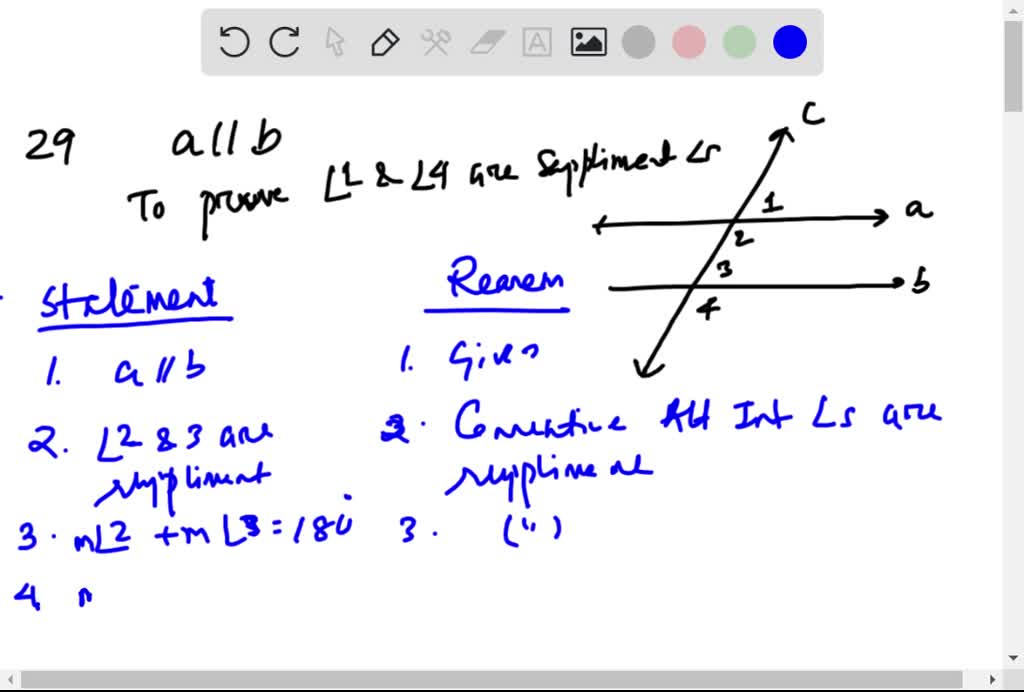 29 a // b
To prove ∠1 & ∠4 are Suppliment ∠s
c
1
a
2
3
b
4
Statement Reason
1. a // b 1. Given
2. ∠2 & 3 are suppliment
2. Consecutive Alt Int ∠s are suppliment
3. m∠2 + m∠3 = 180° 3. (")
4.